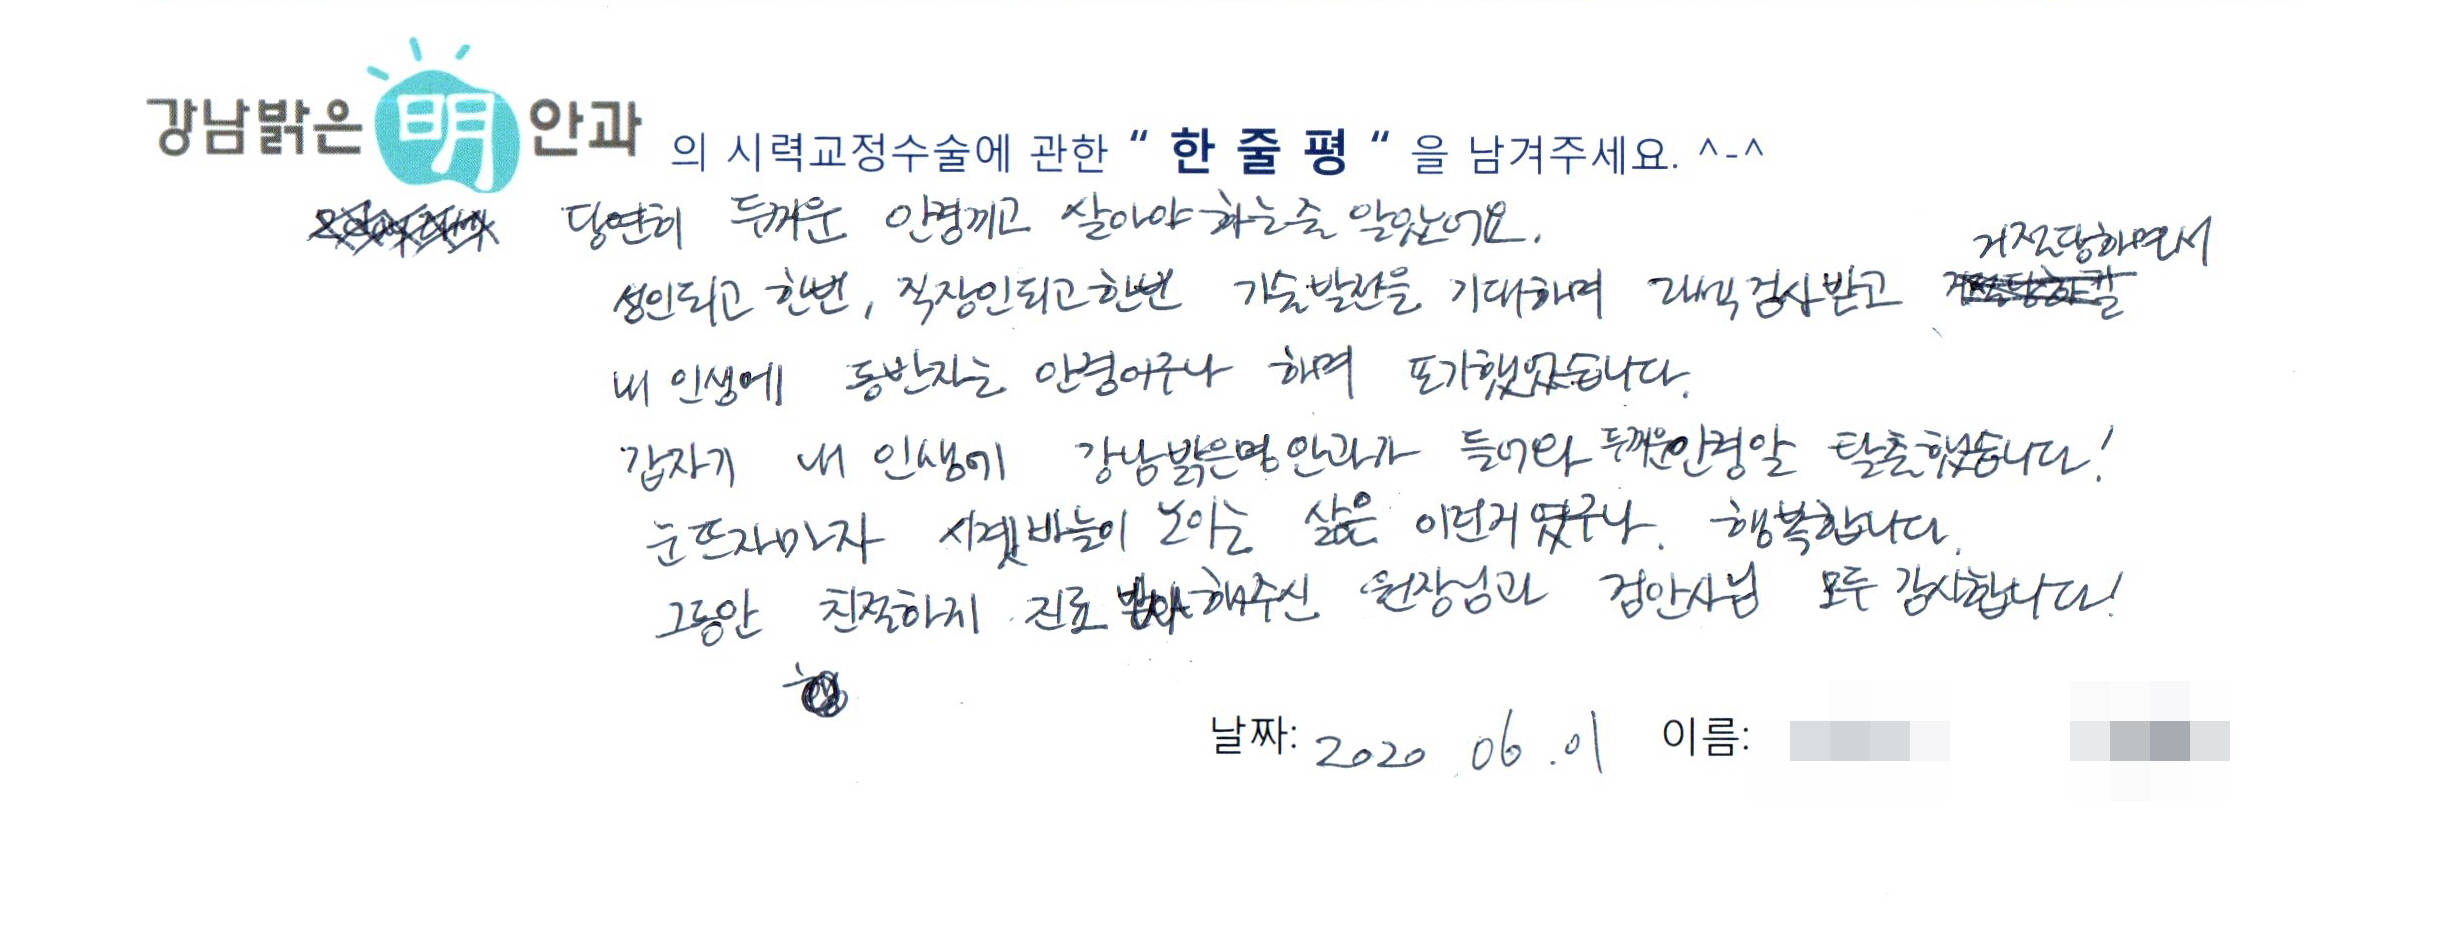 강남밝은 明 안과 의 시력교정수술에 관한 “ 한 줄 평 “ 을 남겨주세요. ^-^
당연히 두꺼운 안경끼고 살아야 하는줄 알았어요.
성인되고 한번, 직장인되고 한번 기술발전을 기대하며 라섹검사받고 거절당하면서
내 인생에 동반자는 안경이구나 하며 포기했었습니다.
갑자기 내 인생에 강남밝은명안과가 들어와 두꺼운안경알 탈출했습니다!
눈뜨자마자 시곗바늘이 보이는 삶은 이런거였구나. 행복합니다.
그동안 친절하게 진료 해주신 원장님과 검안사님 모두 감사합니다!
날짜: 2020.06.01 이름: